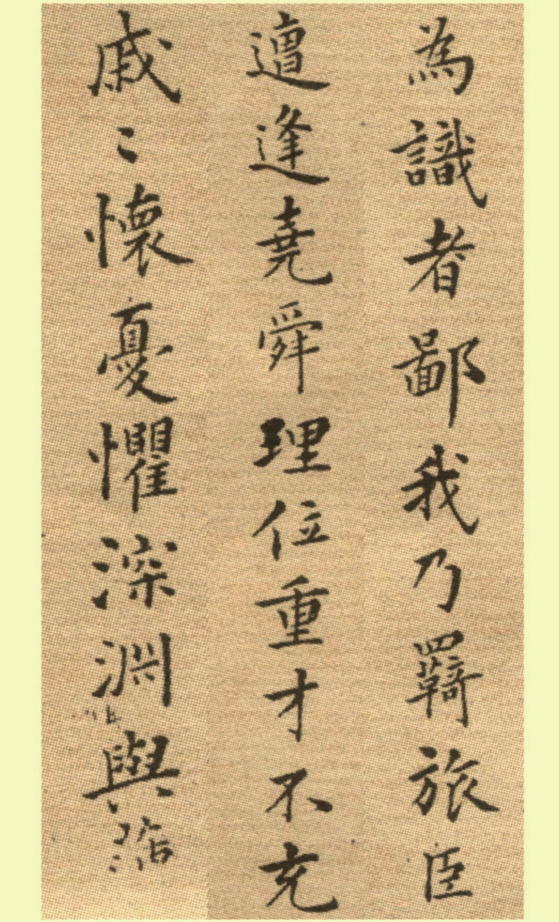 為識者鄙我乃羇旅臣
遭逢堯舜理位重才不充
戚〻懷憂懼深淵與